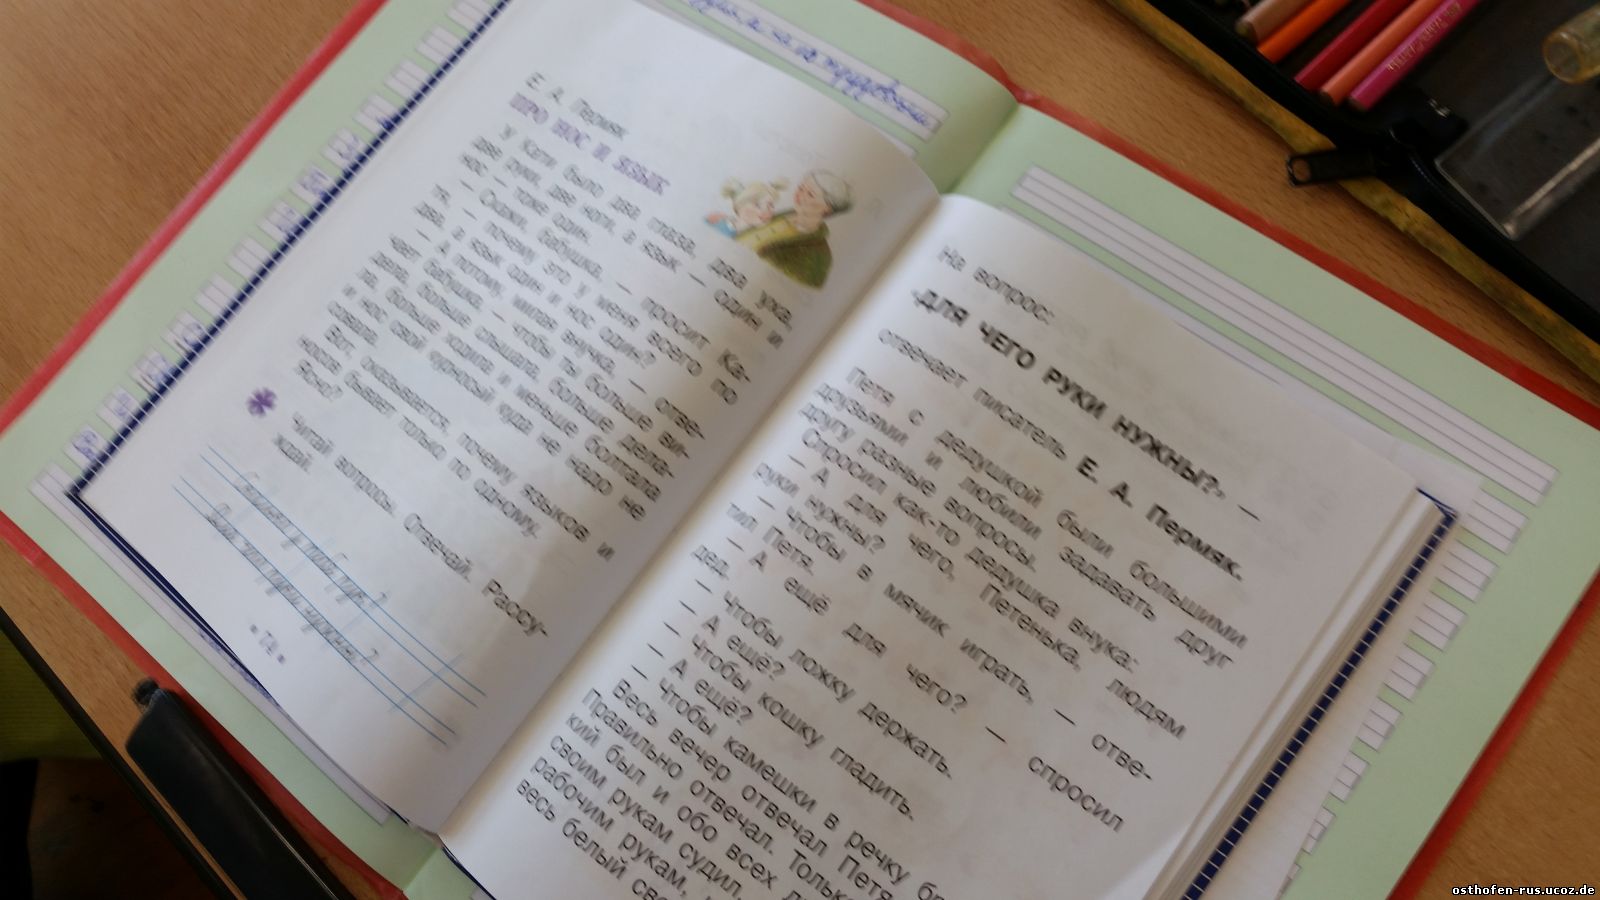 Е. А. Пермяк
ПРО НОС И ЯЗЫК
У Кати было два глаза, два уха,
две руки, две ноги, а язык — один и
нос — тоже один.
— Скажи, бабушка, — просит Ка-
тя, — почему это у меня всего по
два, а язык один и нос один?
— А потому, милая внучка, — отве-
чает бабушка, — чтобы ты больше ви-
дела, больше слышала, больше дела-
ла, больше ходила и меньше болтала
и нос свой курносый куда не надо не
совала.
Вот, оказывается, почему языков и
носов бывает только по одному.
Ясно?
Читай вопросы. Отвечай. Рассу-
ждай.
нужны?
На вопрос:
«ДЛЯ ЧЕГО РУКИ НУЖНЫ?» —
отвечает писатель Е. А. Пермяк.
Петя с дедушкой были большими
друзьями и любили задавать друг
другу разные вопросы.
Спросил как-то дедушка внука:
— А для чего, Петенька, людям
руки нужны?
— Чтобы в мячик играть, — отве-
тил Петя.
— А ещё для чего? — спросил
дед.
— Чтобы ложку держать.
— А ещё?
— Чтобы кошку гладить.
— А ещё?
— Чтобы камешки в речку
Весь вечер отвечал Петя
Правильно отвечал.
кий был и обо всех
своим рукам судил,
рабочим рукам,
весь белый
osthofen-rus.ucoz.de